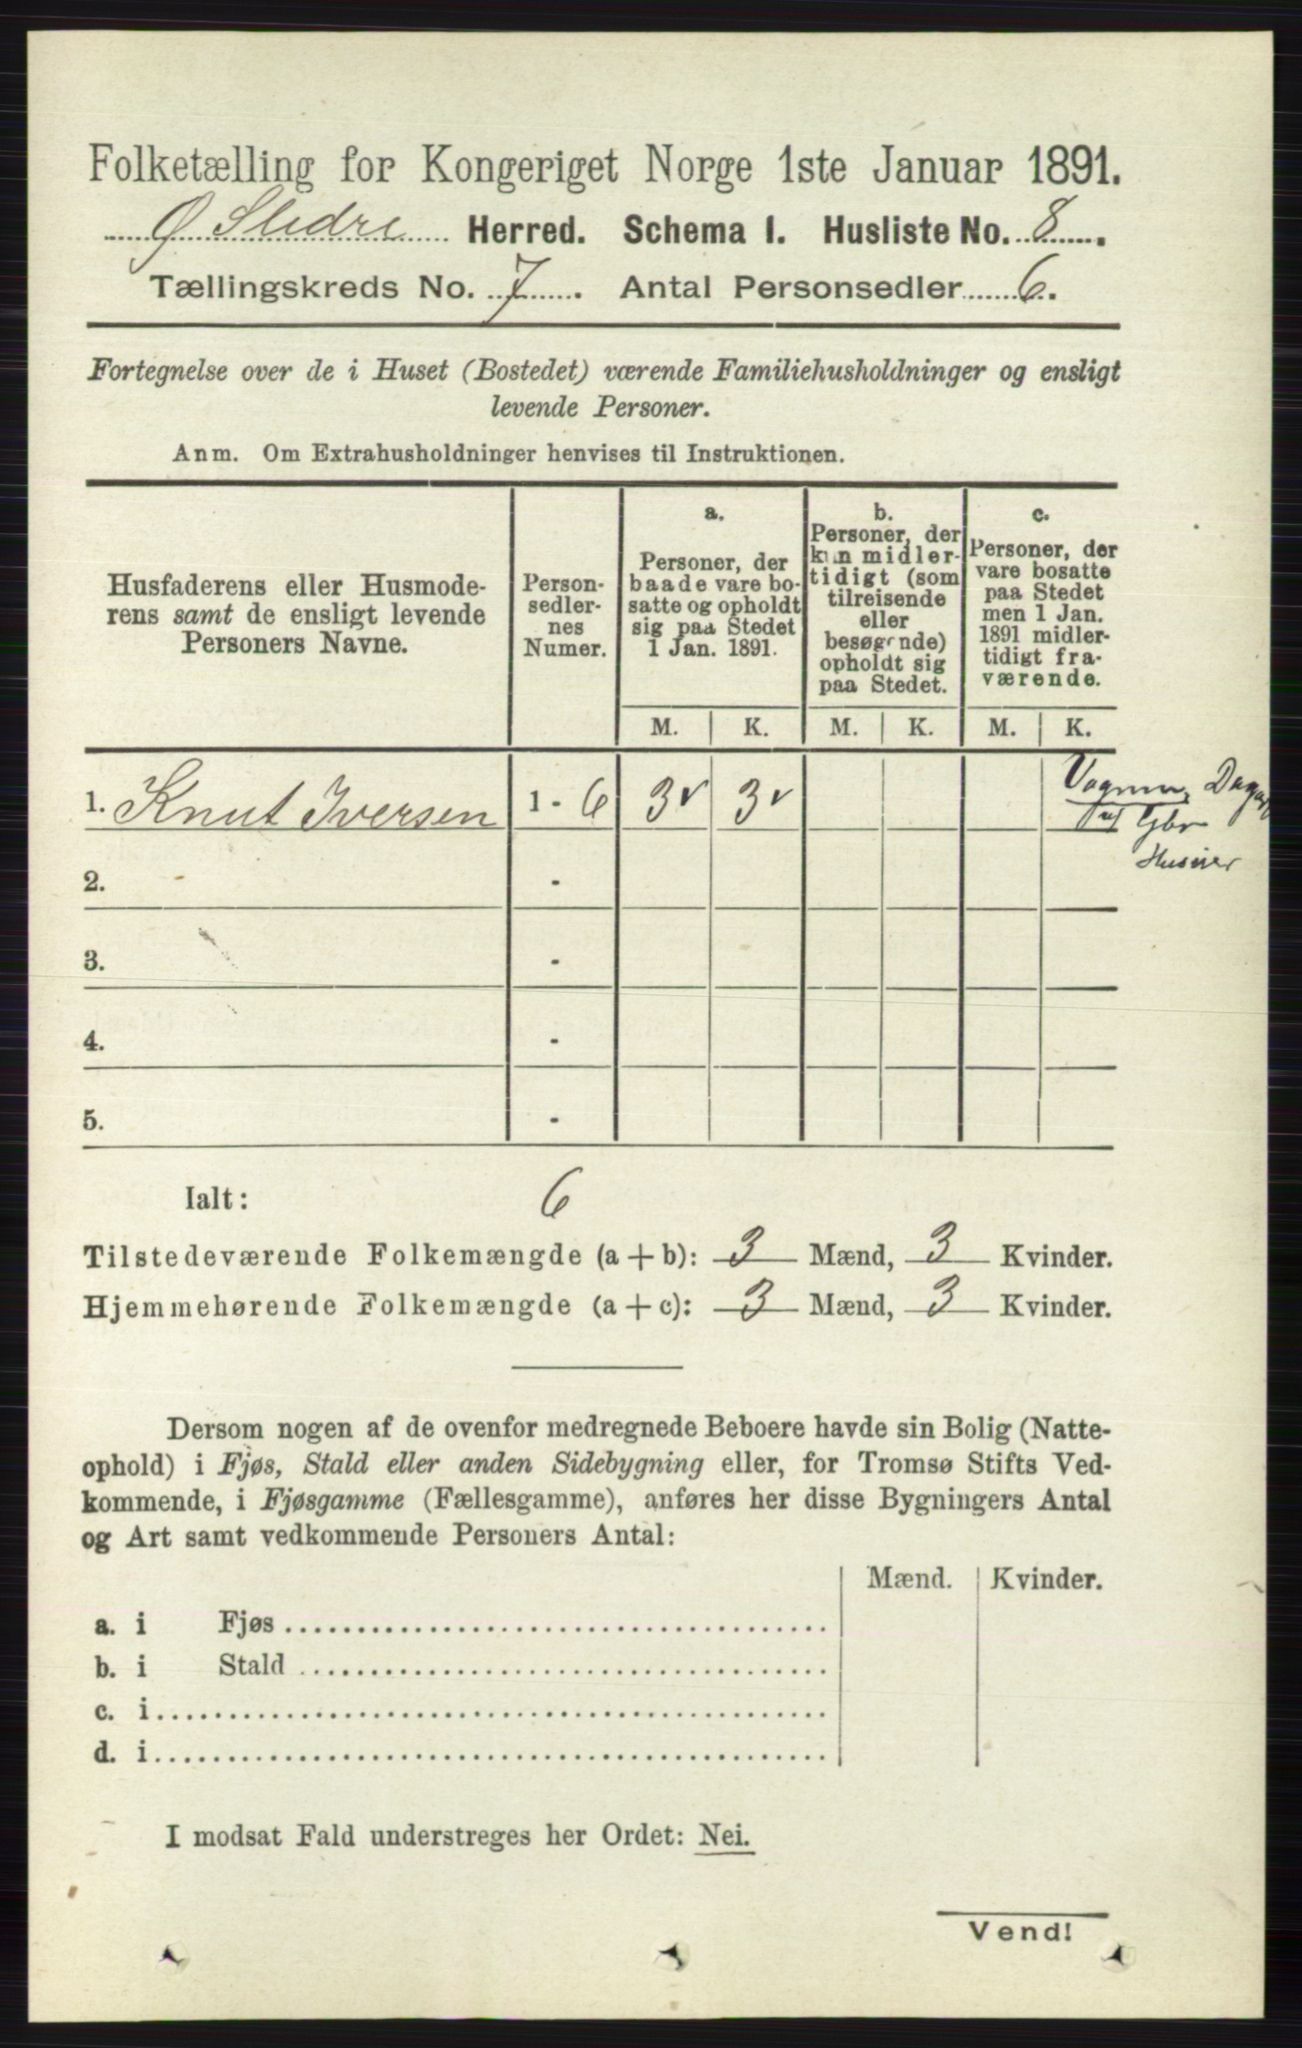 Folketælling for Kongeriget Norge 1ste Januar 1891.
Ø. Slidre Herred. Schema I. Husliste No. 8.
Tællingskreds No. 7. Antal Personsedler 6.
Fortegnelse over de i Huset (Bostedet) værende Familiehusholdninger og ensligt
levende Personer.
Anm. Om Extrahusholdninger henvises til Instruktionen.
Husfaderens eller Husmode-
rens samt de ensligt levende
Personers Navne.
Person-
sedler-
nes
Numer.
a.
Personer, der
baade vare bo-
satte og opholdt
sig paa Stedet
1 Jan. 1891.
b.
Personer, der
kun midler-
tidigt (som
tilreisende
eller
besøgende)
opholdt sig
paa Stedet.
c.
Personer, der
vare bosatte
paa Stedet
men 1 Jan.
1891 midler-
tidigt fra-
værende.
M. K. M. K. M. K.
1. Knut Iversen 1 - 6 3 3
Gbr
Huseier
2. -
3. -
4. -
5. -
Ialt: 6
Tilstedeværende Folkemængde (a + b): 3 Mænd, 3 Kvinder.
Hjemmehørende Folkemængde (a + c): 3 Mænd, 3 Kvinder.
Dersom nogen af de ovenfor medregnede Beboere havde sin Bolig (Natte-
ophold) i Fjøs, Stald eller anden Sidebygning eller, for Tromsø Stifts Ved-
kommende, i Fjøsgamme (Fællesgamme), anføres her disse Bygningers Antal
og Art samt vedkommende Personers Antal:
Mænd. Kvinder.
a. i Fjøs
b. i Stald
c. i
d. i
I modsat Fald understreges her Ordet: Nei.
Vend!